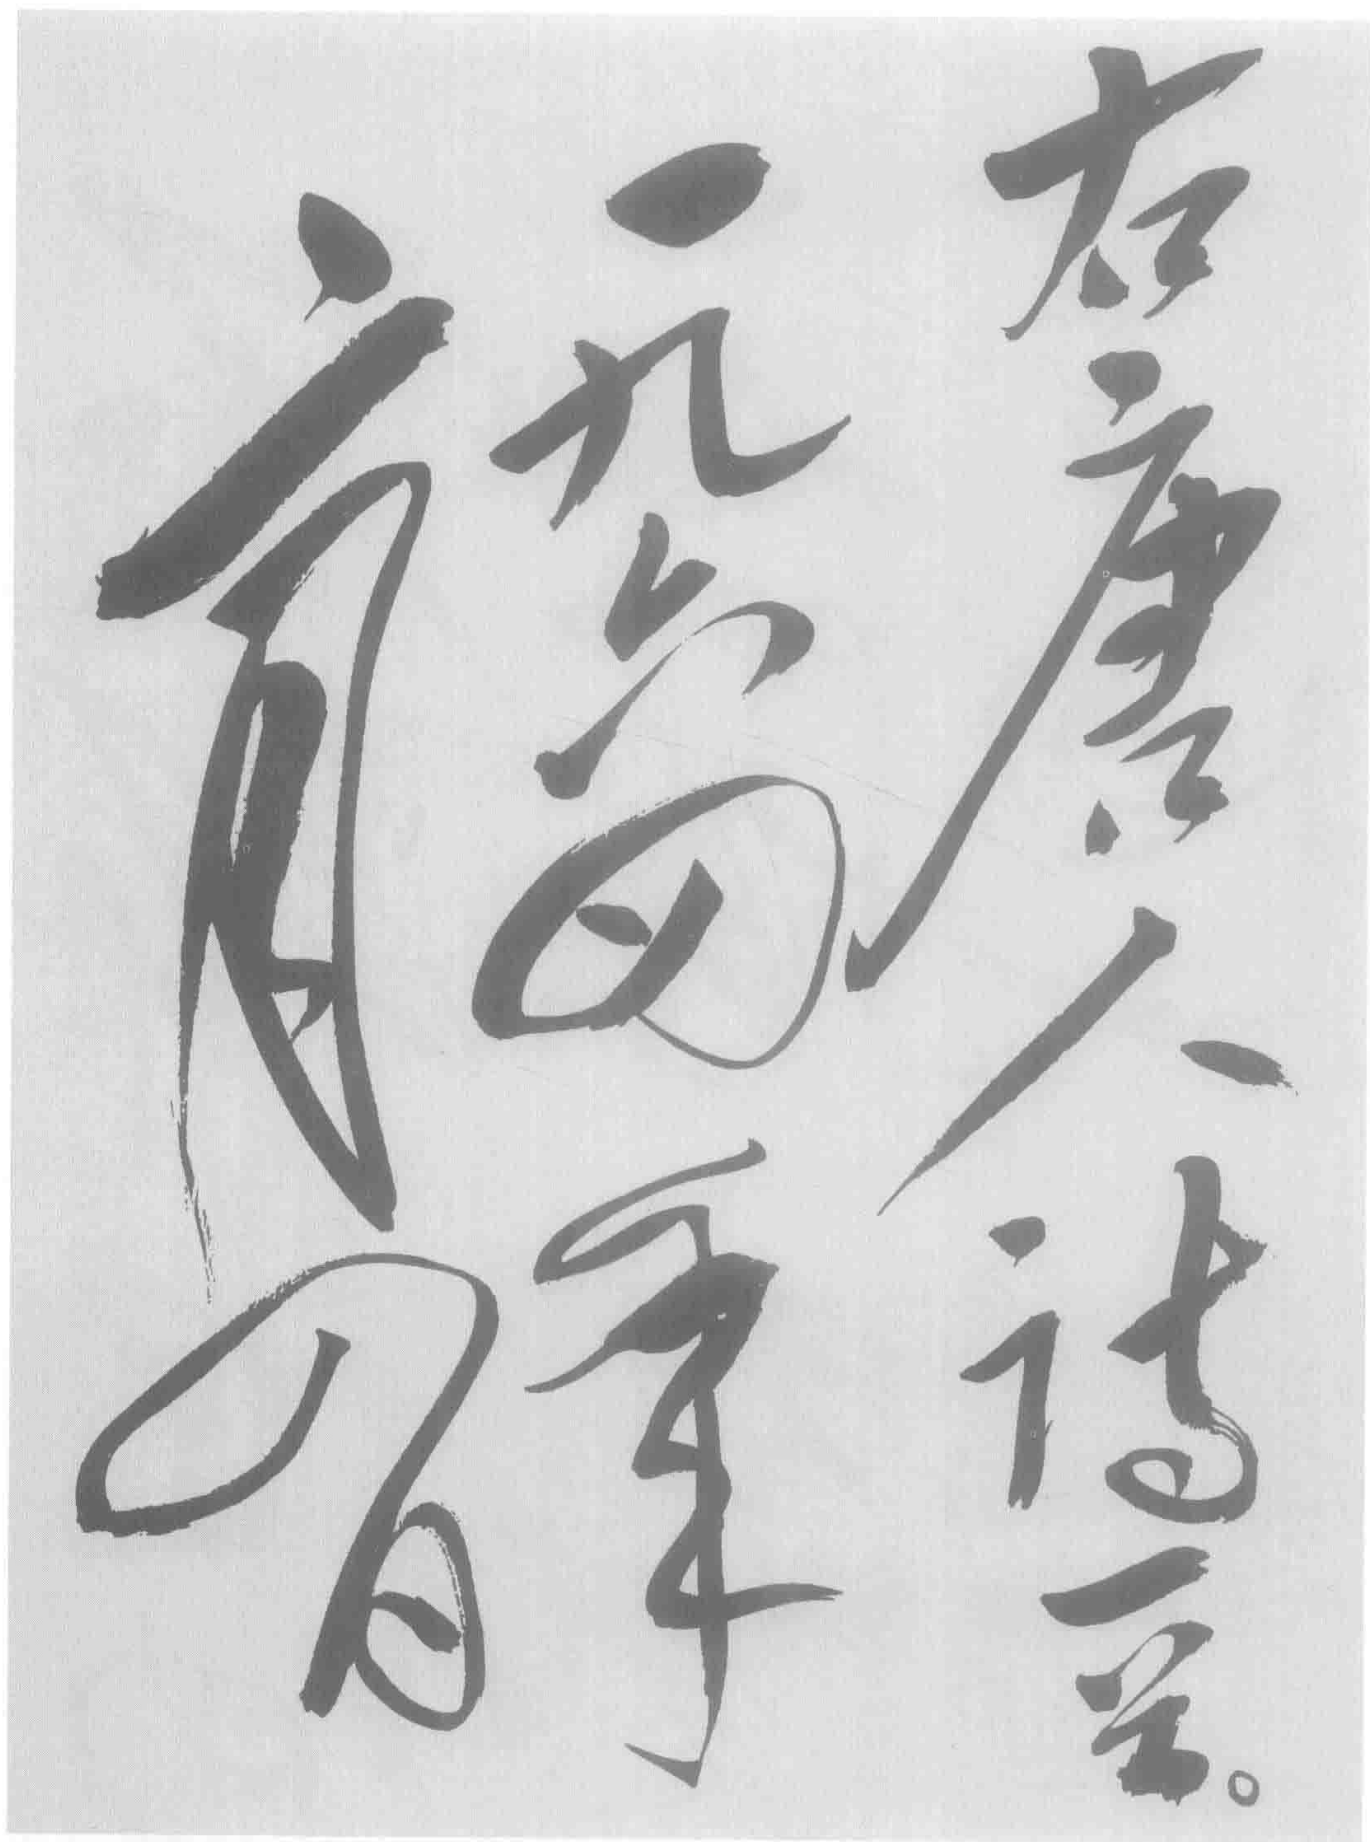 右唐人诗一首。
一九六四年
二月日